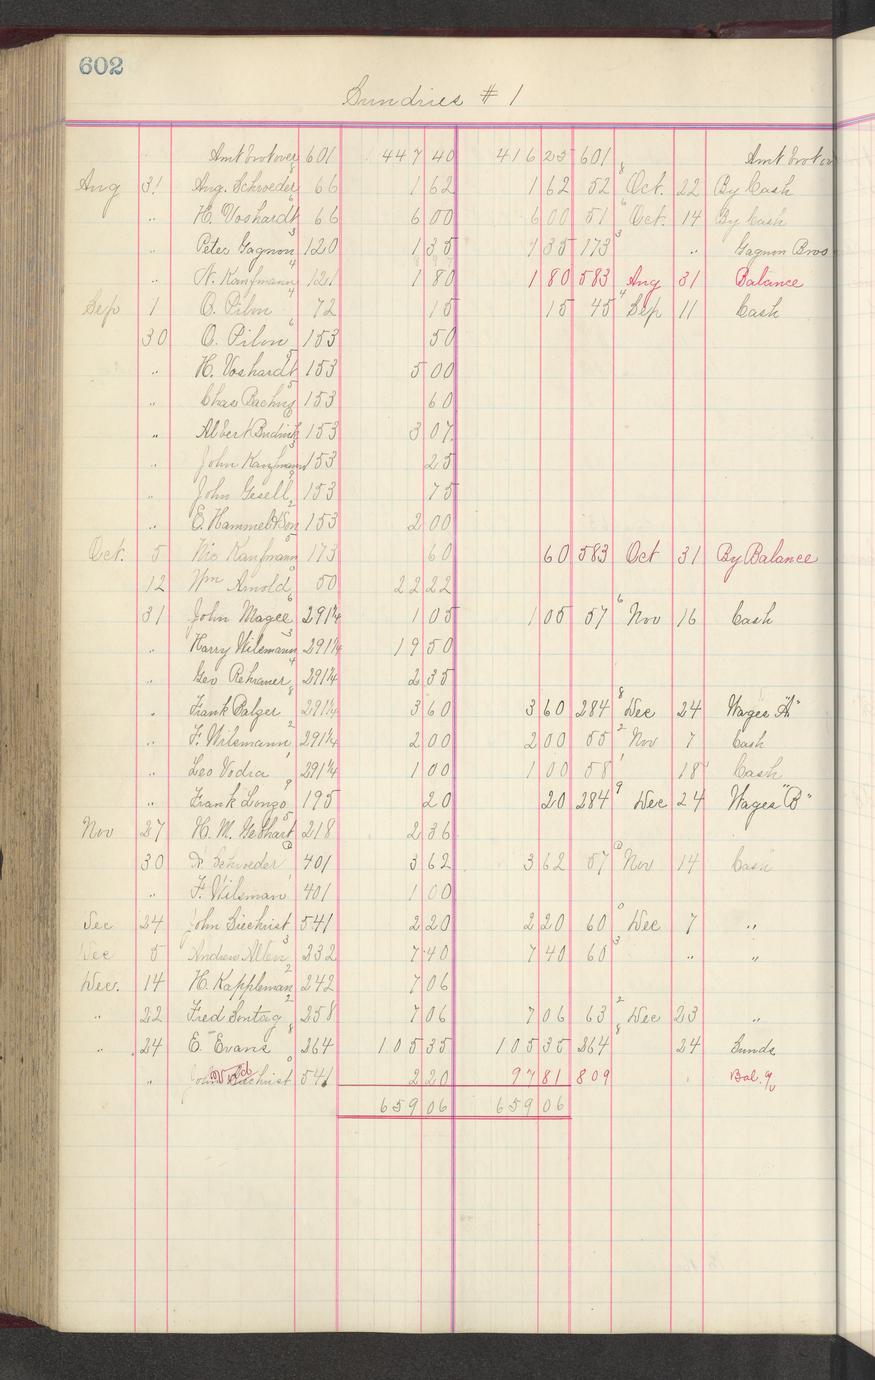 602
Sundries # 1
Amt brot over 601 447 40 416 25 601 Amt brot ov
Aug 31 Aug. Schroeder 8 66 1 62 1 62 52 8 Oct. 22 By Cash
" H. Voshardt 6 66 6 00 6 00 51 6 Oct. 14 By Cash
" Peter Gagnon 3 120 1 35 1 35 173 3 " Gagnon Bros
" N. Kaufmann 4 121 1 80 1 80 583 Aug 31 Balance
Sep 1 O. Pilon 4 72 15 15 45 4 Sep 11 Cash
30 O. Pilon 6 153 50
" H. Voshardt 5 153 5 00
" Chas 5 153 60
" Albert 153 3 07
" John Kaufmann 3 153 25
" John Gesell 9 153 75
" E. Hammel & Son 2 153 2 00
Oct. 5 Nic Kaufmann 5 173 60 60 583 Oct 31 By Balance
12 Wm Arnold 0 50 22 22
31 John Magee 6 291¼ 1 05 1 05 57 6 Nov 16 Cash
" Harry Wilsmann 3 291¼ 19 50
" Geo 4 291¼ 2 35
" Frank Balzer 8 291¼ 3 60 3 60 284 8 Dec 24 Wages "A"
" F. Wilsmann 2 291¼ 2 00 2 00 55 2 Nov 7 Cash
" Leo Vodra 1 291¼ 1 00 1 00 58 1 18 Cash
" Frank Longo 9 195 20 20 284 9 Dec 24 Wages "B"
Nov 27 H. M. Gebhart 5 218 2 36
30 Schroeder 401 3 62 3 62 57 Nov 14 Cash
" F. Wilsman 1 401 1 00
Dec 24 John Siechrist 541 2 20 2 20 60 0 Dec 7 "
Dec 5 Andrew Allen 3 232 7 40 7 40 60 3 " "
Dec. 14 H. Kappleman 2 242 7 06
" 22 Fred Sontag 2 258 7 06 7 06 63 2 Dec 23 "
" 24 E. Evans 8 264 105 35 105 35 264 8 24 Sunds
" John Siechrist 0 541 2 20 97 81 809 Bal.
659 06 659 06